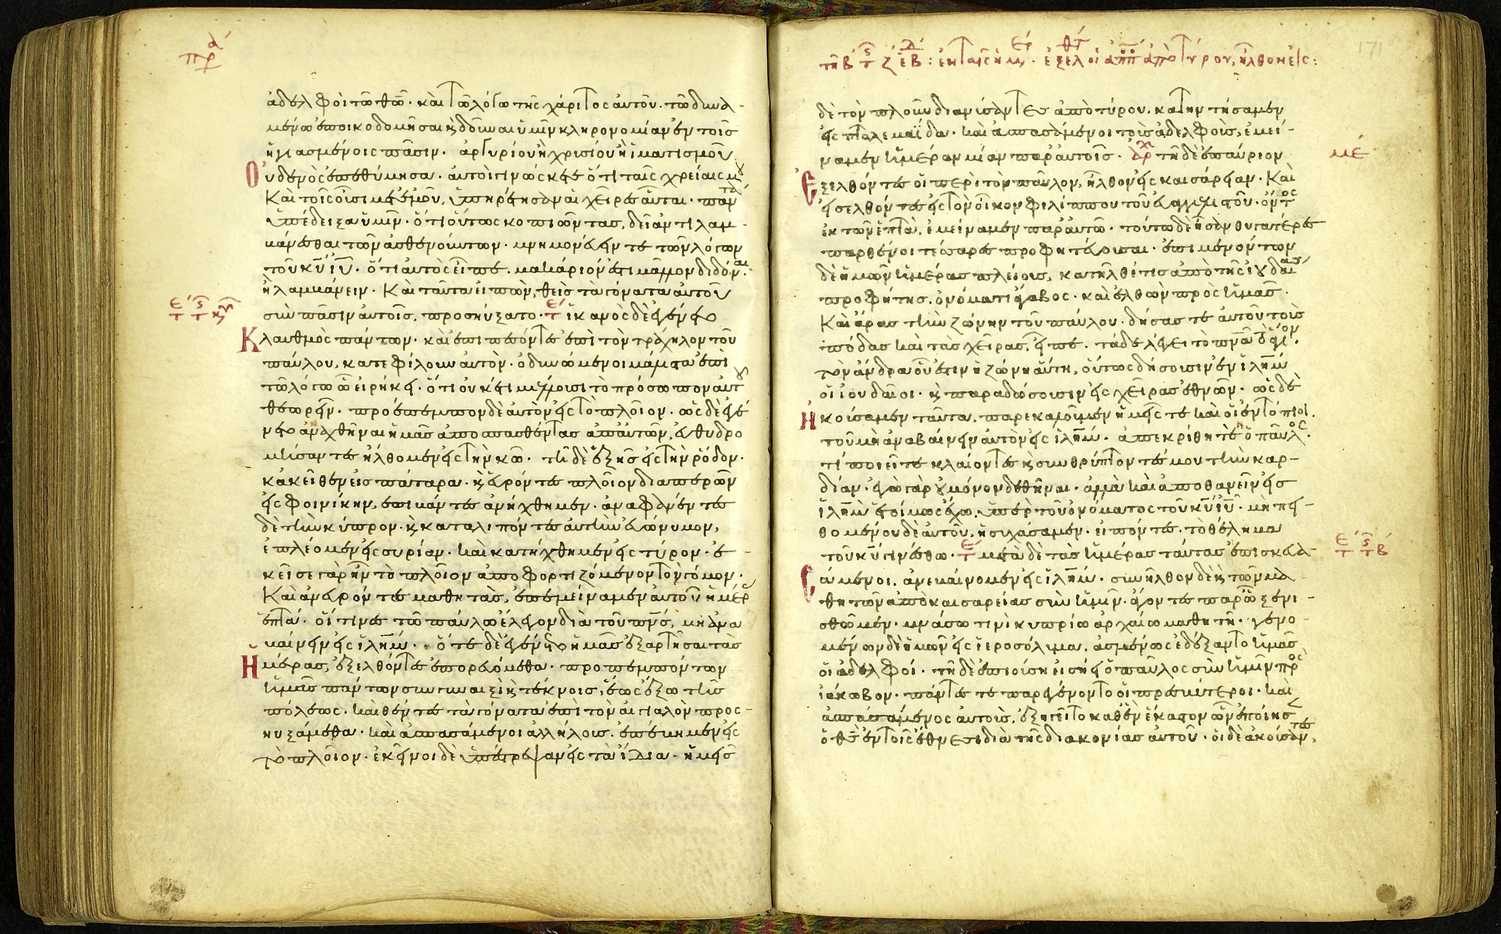 ἀδελφοὶ τῶ θῶ· καὶ τῶ λόγω τῆς χάριτος αὐτοῦ· τῶ δυνα-
μένω ἐποικοδομῆσαι καὶ δοῦναι ὑμῖν κληρονομίαν ἐν τοῖς
ἡγιασμένοις πᾶσιν· ἀργυρίου ἢ χρισίου ἢ ἱματισμοῦ
Οὐδενὸς ἐπεθύμησα· αὐτοὶ γινώσκετε ὅτι ταῖς χρείαις μ
Καὶ τοῖς οὖσι μετ' ἐμοῦ, ὑπηρέτησαν αἱ χεῖρες αὗται· πάντα
ὑπέδειξα ὑμῖν· ὅτι οὕτως κοπιῶντας, δεῖ ἀντιλαμ-
βάνεσθαι τῶν ἀσθενούντων· μνημονεύειν τε τῶν λόγων
τοῦ κυ ιυ· ὅτι αὐτὸς εἶπε· μακάριόν ἐστι μᾶλλον διδόναι
ἢ λαμβάνειν· Καὶ ταῦτα εἰπὼν, θεὶς τὰ γόνατα αὐτοῦ
σὺν πᾶσιν αὐτοῖς, προσηύξατο· ἱκανὸς δὲ ἐγένετο
Κλαυθμὸς πάντων· καὶ ἐπιπεσόντες ἐπὶ τὸν τράχηλον τοῦ
παύλου, κατεφίλουν αὐτόν· ὀδυνώμενοι μάλιστα ἐπὶ
τῶ λόγω ὧ εἰρήκει· ὅτι οὐκέτι μέλλουσι τὸ πρόσωπον αὐτ
θεωρεῖν· προέπεμπον δὲ αὐτὸν εἰς τὸ πλοῖον· ὡς δὲ ἐγέ
νετο ἀναχθῆναι ἡμᾶς ἀποσπασθέντας ἀπ' αὐτῶν, εὐθυδρο
μήσαντες ἤλθομεν εἰς τὴν κῶ· τῆ δὲ ἑξῆς εἰς τὴν ρόδον·
κἀκεῖθεν εἰς πάταρα· καὶ εὑρόντες πλοῖον διαπερῶν
εἰς φοινίκην, ἐπιβάντες ἀνήχθημεν· ἀναφανέντες
δὲ τὴν κύπρον· καὶ καταλιπόντες αὐτὴν εὐώνυμον,
ἐπλέομεν εἰς συρίαν· καὶ κατήχθημεν εἰς τύρον· ἐ-
κεῖσε γὰρ ἦν τὸ πλοῖον ἀποφορτιζόμενον τὸν γόμον·
Καὶ ἀνευρόντες μαθητὰς, ἐπεμείναμεν αὐτοῦ ἡμέρ
ἑπτά· οἵτινες τῶ παύλω ἔλεγον διὰ τοῦ πνς, μὴ ἀνα
βαίνειν εἰς ιλημ· ὅτε δὲ ἐγένετο ἡμᾶς ἐξαρτῆσαι τὰς
Ἡμέρας, ἐξελθόντες ἐπορευόμεθα· προπεμπόντων
ἡμᾶς πάντων σὺν γυναιξὶ καὶ τέκνοις, ἕως ἔξω τῆς
πόλεως· καὶ θέντες τὰ γόνατα ἐπὶ τὸν αἰγιαλὸν προσ-
ηυξάμεθα· καὶ ἀσπασάμενοι ἀλλήλους, ἐπέβημεν εἰς
τὸ πλοῖον· ἐκεῖνοι δὲ ὑπέστρεψαν εἰς τὰ ἴδια· ἡμεῖς
ἐξελ οἱ ἀπ ἀπὸ τύρου, ἦλθον εἰς:
δὲ τὸν πλοῦν διανύσαντες ἀπὸ τύρου, κατηντήσαμεν
εἰς πτολεμαΐδα· καὶ ἀσπασάμενοι τοὺς ἀδελφοὺς, ἐμεί-
ναμεν ἡμέραν μίαν παρ' αὐτοῖς· τῆ δὲ ἐπαύριον
με
Ἐξελθόντες οἱ περὶ τὸν παῦλον, ἦλθον εἰς καισάρειαν· Καὶ
εἰσελθόντες εἰς τὸν οἶκον φιλίππου τοῦ εὐαγγελιστοῦ· ὄντος
ἐκ τῶν ἑπτὰ, ἐμείναμεν παρ' αὐτῶ· τούτω δὲ ἦσαν θυγατέρες
παρθένοι τέσσαρες προφητεύουσαι· ἐπιμενόντων
δὲ ἡμῶν ἡμέρας πλείους, κατῆλθέ τις ἀπὸ τῆς ἰουδαίας
προφήτης, ὀνόματι ἄγαβος· καὶ ἐλθὼν πρὸς ἡμᾶς·
Καὶ ἄρας τὴν ζώνην τοῦ παύλου· δήσας τε αὐτοῦ τοὺς
πόδας καὶ τὰς χεῖρας, εἶπε· τάδε λέγει τὸ πνα τὸ ἅγιον
τὸν ἄνδρα οὗ ἐστιν ἡ ζώνη αὕτη, οὕτως δήσουσιν ἐν ιλημ
οἱ ἰουδαῖοι· καὶ παραδώσουσιν εἰς χεῖρας ἐθνῶν· ὡς δὲ
Ἠκούσαμεν ταῦτα, παρεκαλοῦμεν ἡμεῖς τε καὶ οἱ ἐντόπιοι
τοῦ μὴ ἀναβαίνειν αὐτὸν εἰς ιλημ· ἀπεκρίθη τε ὁ παῦλος·
τί ποιεῖτε κλαίοντες καὶ συνθρύπτοντές μου τὴν καρ-
δίαν· ἐγὼ γὰρ οὐ μόνον δεθῆναι· ἀλλὰ καὶ ἀποθανεῖν εἰς
ιλημ ἑτοίμως ἔχω, ὑπὲρ τοῦ ὀνόματος τοῦ κυ ιυ· μὴ πει-
θομένου δὲ αὐτοῦ, ἡσυχάσαμεν· εἰπόντες· τὸ θέλημα
τοῦ κυ γινέσθω· μετὰ δὲ τὰς ἡμέρας ταύτας ἐπισκευα-
σάμενοι, ἀνεβαίνομεν εἰς ιλημ· συνῆλθον δὲ καὶ τῶν μα
θητῶν ἀπὸ καισαρείας σὺν ἡμῖν· ἄγοντες παρ' ὧ ξενι-
σθῶμεν· μνάσωνι τινὶ κυπρίω ἀρχαίω μαθητῆ· γενο-
μένων δὲ ἡμῶν εἰς ἱεροσόλυμα, ἀσμένως ἐδέξαντο ἡμᾶς
οἱ ἀδελφοί· τῆ δὲ ἐπιούση εἰσήει ὁ παῦλος σὺν ἡμῖν πρὸς
ἰάκωβον· πάντες τε παρεγένοντο οἱ πρεσβύτεροι· καὶ
ἀσπασάμενος αὐτοὺς, ἐξηγεῖτο καθ' ἓν ἕκαστον ὧν ἐποίησ
ὁ θς ἐν τοῖς ἔθνεσι διὰ τῆς διακονίας αὐτοῦ· οἱ δὲ ἀκούσαντες